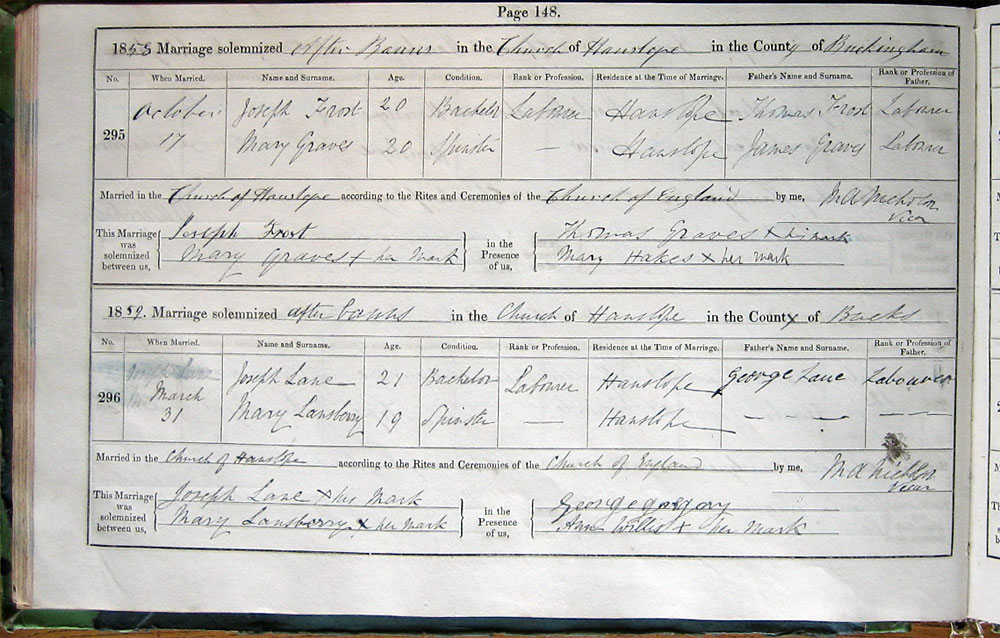 Page 148.
1858 Marriage solemnized after Banns in the Church of Hanslope in the County of Buckingham
No. When Married. Name and Surname. Age. Condition. Rank or Profession. Residence at the Time of Marriage. Father's Name and Surname. Rank or Profession of Father.
October Joseph Frost 20 Bachelor Labourer Hanslope Thomas Frost Labourer
295
17 Mary Graves 20 Spinster — Hanslope James Graves Labourer
Married in the Church of Hanslope according to the Rites and Ceremonies of the Church of England by me, M A Nicholson
Vicar
This Marriage was solemnized between us, Joseph Frost in the Presence of us, Thomas Graves x his mark
Mary Graves x her mark Mary Hakes x her mark
1859. Marriage solemnized after banns in the Church of Hanslope in the County of Bucks
No. When Married. Name and Surname. Age. Condition. Rank or Profession. Residence at the Time of Marriage. Father's Name and Surname. Rank or Profession of Father.
March Joseph Lane 21 Bachelor Labourer Hanslope George Lane Labourer
296
31 Mary Lansberry 19 Spinster — Hanslope — — — — —
Married in the Church of Hanslope according to the Rites and Ceremonies of the Church of England by me, M A Nicholson
Vicar
This Marriage was solemnized between us, Joseph Lane x his mark in the Presence of us, George gregory
Mary Lansberry x her mark Ann Willis x her mark